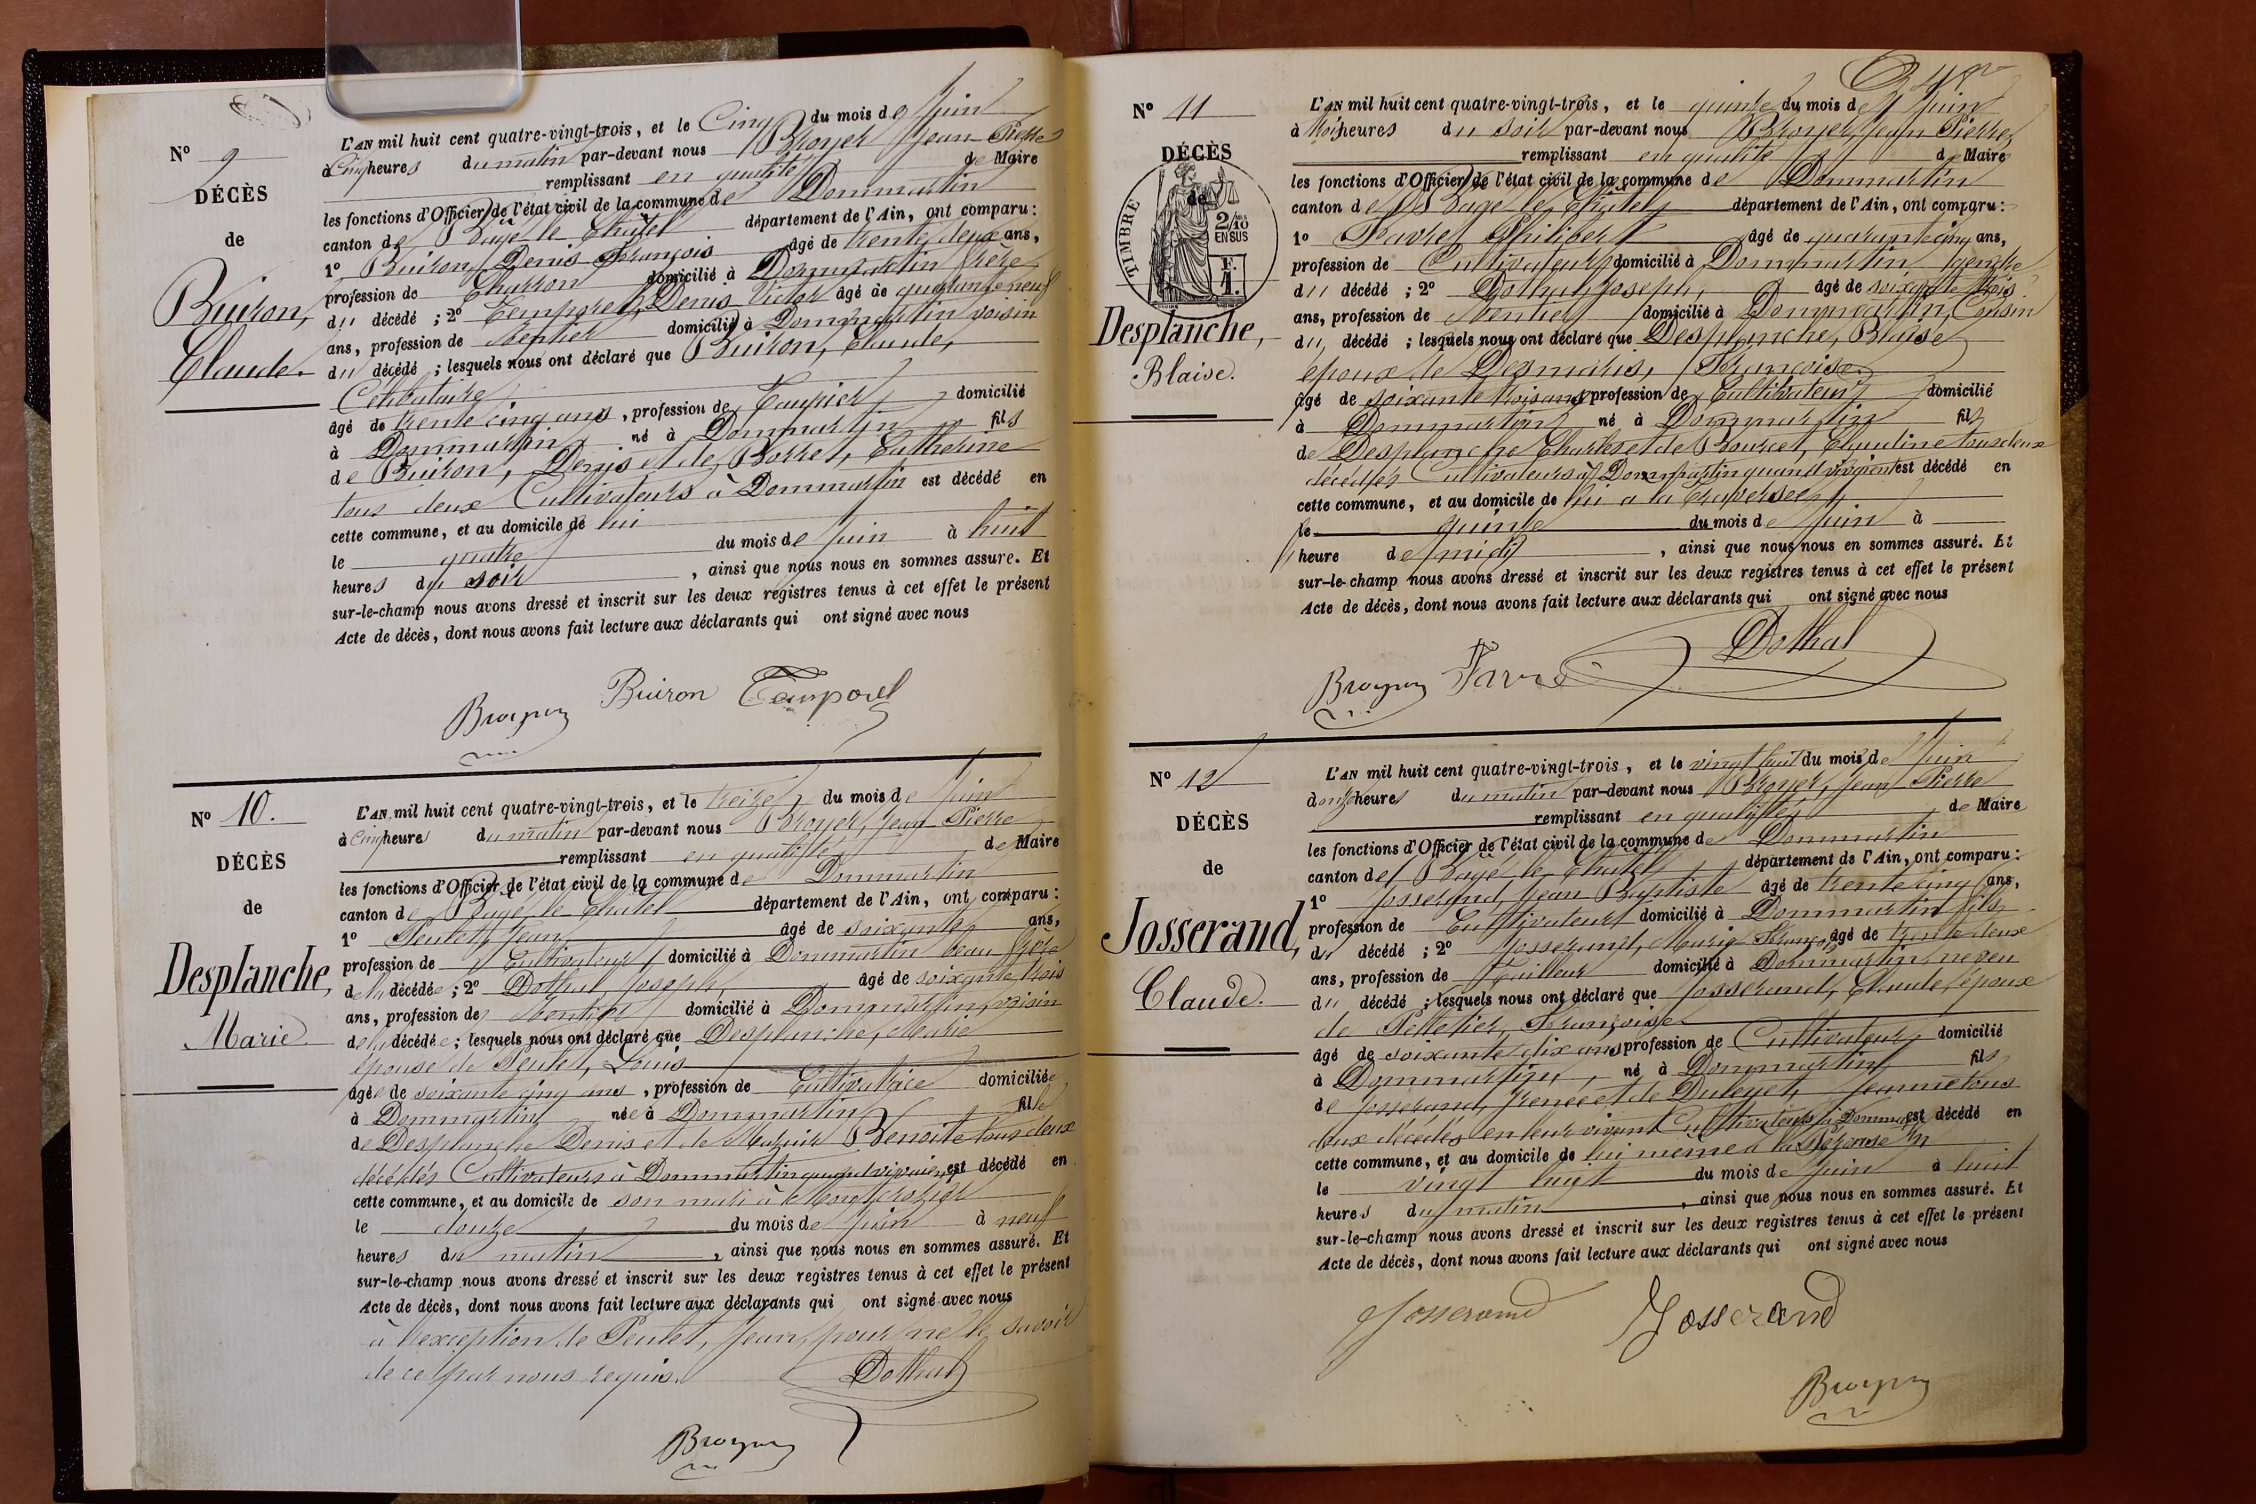 N° 9
DÉCÈS
de
Buiron,
Claude.
L'AN mil huit cent quatre-vingt-trois, et le Cinq du mois de Juin
à Cinq heures du matin par-devant nous Broyer Jean Pierre
remplissant en qualité de Maire
les fonctions d'Officier de l'état civil de la commune de Dommartin
canton de Bâgé le Châtel département de l'Ain, ont comparu:
1° Buiron, Denis François âgé de trente deux ans,
profession de Charron domicilié à Dommartin frère
du décédé; 2° Temporel, Denis Victor âgé de quarante neuf
ans, profession de Rentier domicilié à Dommartin voisin
du décédé; lesquels nous ont déclaré que Buiron, Claude,
Célibataire,
âgé de trente cinq ans, profession de Taupier, domicilié
à Dommartin, né à Dommartin fils
de Buiron, Denis et de Borret, Catherine
tous deux Cultivateurs à Dommartin est décédé en
cette commune, et au domicile de lui
le quatre du mois de juin à huit
heures du soir, ainsi que nous nous en sommes assuré. Et
sur-le-champ nous avons dressé et inscrit sur les deux registres tenus à cet effet le présent
Acte de décès, dont nous avons fait lecture aux déclarants qui ont signé avec nous
Broyer Buiron Temporel
N° 10.
DÉCÈS
de
Desplanche,
Marie
L'AN mil huit cent quatre-vingt-trois, et le treize, du mois de Juin
à Cinq heures du matin par-devant nous Broyer, Jean Pierre
remplissant en qualité, de Maire
les fonctions d'Officier de l'état civil de la commune de Dommartin
canton de Bâgé le Châtel département de l'Ain, ont comparu:
1° Peulet, Jean âgé de soixante ans,
profession de Cultivateur domicilié à Dommartin beau frère
de la décédée; 2° Dothal, Joseph, âgé de soixante trois
ans, profession de Rentier domicilié à Dommartin, voisin
de la décédée; lesquels nous ont déclaré que Desplanche, Marie
épouse de Peulet, Louis
âgée de soixante cinq ans, profession de Cultivatrice domiciliée
à Dommartin, née à Dommartin fille
de Desplanche Denis et de Benoite tous deux
décédés Cultivateurs à Dommartin quand vivaient est décédé en
cette commune, et au domicile de son mari à
le douze du mois de juin à neuf
heures du matin, ainsi que nous nous en sommes assuré. Et
sur-le-champ nous avons dressé et inscrit sur les deux registres tenus à cet effet le présent
Acte de décès, dont nous avons fait lecture aux déclarants qui ont signé avec nous
à l'exception de Peulet, Jean, pour ne le savoir
de ce par nous requis.
Dothal
Broyer
N° 11
DÉCÈS
de
TIMBRE
2/10
EN SUS
F.
1.
Desplanche,
Blaise.
L'AN mil huit cent quatre-vingt-trois, et le quinze du mois de Juin
à trois heures du soir par-devant nous Broyer, Jean Pierre,
remplissant en qualité de Maire
les fonctions d'Officier de l'état civil de la commune de Dommartin
canton de Bâgé le Châtel département de l'Ain, ont comparu:
1° Favre, Philibert âgé de quarante cinq ans,
profession de Cultivateur domicilié à Dommartin gendre
du décédé; 2° Dothal, Joseph, âgé de soixante trois
ans, profession de Rentier domicilié à Dommartin, Cousin
du décédé; lesquels nous ont déclaré que Desplanche, Blaise
époux de Desmaris, Françoise
âgé de soixante trois ans profession de Cultivateur, domicilié
à Dommartin né à Dommartin fils
de Desplanche Charles et de Bourcet, Claudine tous deux
décédés Cultivateurs à Dommartin quand vivaient est décédé en
cette commune, et au domicile de lui à la traversée,
le quinze du mois de juin à
heure de midi, ainsi que nous nous en sommes assuré. Et
sur-le-champ nous avons dressé et inscrit sur les deux registres tenus à cet effet le présent
Acte de décès, dont nous avons fait lecture aux déclarants qui ont signé avec nous
Dothal
Broyer Favre
N° 12
DÉCÈS
de
Josserand,
Claude.
L'AN mil huit cent quatre-vingt-trois, et le vingt huit du mois de Juin
à onze heures du matin par-devant nous Broyer, Jean Pierre
remplissant en qualité, de Maire
les fonctions d'Officier de l'état civil de la commune de Dommartin
canton de Bâgé le Châtel département de l'Ain, ont comparu:
1° Josserand, Jean Baptiste âgé de trente cinq ans,
profession de Cultivateur domicilié à Dommartin fils
du décédé; 2° Josserand, Marie François âgé de trente deux
ans, profession de Tailleur domicilié à Dommartin neveu
du décédé; lesquels nous ont déclaré que Josserand, Claude, époux
de Pelletier, Françoise
âgé de soixante dix ans profession de Cultivateur, domicilié
à Dommartin, né à Dommartin fils
de Josserand, et de Jeanne tous
deux décédés en leur vivant Cultivateurs à Dommartin est décédé en
cette commune, et au domicile de lui même à
le vingt huit du mois de juin à huit
heures du matin, ainsi que nous nous en sommes assuré. Et
sur-le-champ nous avons dressé et inscrit sur les deux registres tenus à cet effet le présent
Acte de décès, dont nous avons fait lecture aux déclarants qui ont signé avec nous
Josserand Josserand
Broyer